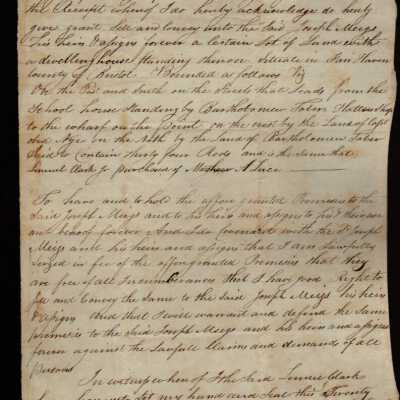 the Receipt whereof I do hereby acknowledge do herby
give grant Sell and Convey unto the Said Joseph Meigs
his heirs & assigns forever a Certain Lot of Land with
a dwelling house standing thereon Situate in Fair Haven
County of Bristol Bounded as follows viz
On the and South on the Street that leads from the
School house Standing by Bartholomew Taber Shop
to the wharf on the Point, on the west by the Land of Capt
Nye on the Nth by the Land of Bartholomew Taber
Said to Contain thirty four Rods and is the Same that
Lemuel Clark Jr purchased of Luce
To have and to hold the afore granted Premises to the
Said Joseph Meigs and to his heirs and assigns to his & their use
and behoof forever And I do Covenant with the Sd Joseph
Meigs and his heirs and assigns that I am Lawfully
Seized in fee of the aforegranted Premises that they
are free of all Incumbrances that I have good Right to
Sell and Convey the Same to the Said Joseph Meigs his heirs
& assigns And that I will warrant and defend the Same
premises to the Said Joseph Meigs and his heirs and assigns
forever against the Lawfull Claims and demands of all
persons
In witness whereof I the Said Lemuel Clark
have set my hand and Seal this Twenty